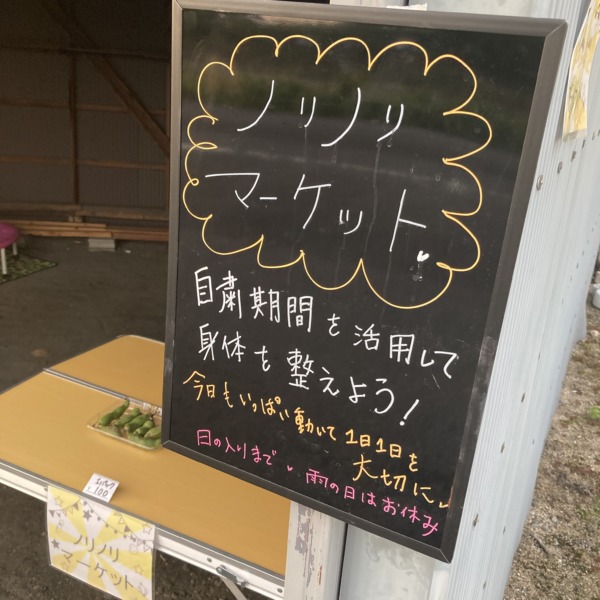 ノリノリ
マーケット
自粛期間を活用して
身体を整えよう!
今日もいっぱい動いて1日1日を
大切に
日の入りまで 雨の日はお休み
¥100
ノリノリ
マーケット